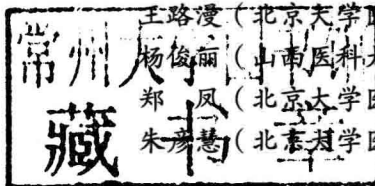 王路漫（北京大学医
杨俊丽（山西医科大
郑 凤（北京大学医
朱彦慧（北京大学医
常州大学
藏书章